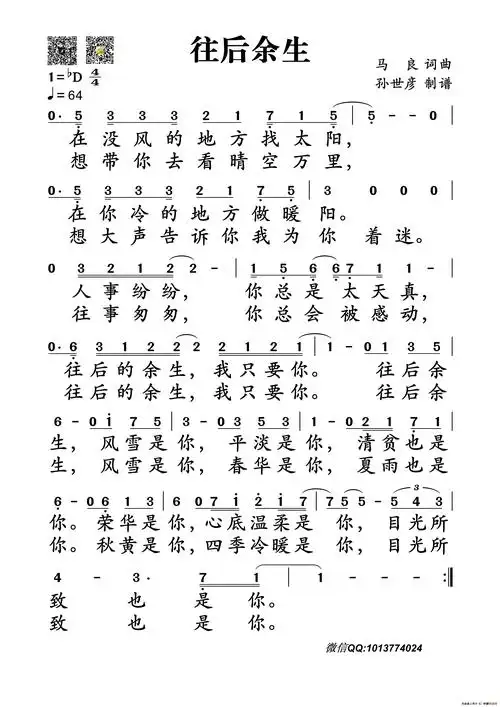 往后余生
1=♭D 4/4
马 良 词曲
♩=64
孙世彦 制谱
0· 5 3 3 3 2 1 7 1 5 | 5 - - 0 |
在 没 风 的 地 方 找 太 阳,
想 带 你 去 看 晴 空 万 里,
0· 5 3 3 3 2 1 7 5 | 3 0 0 0 |
在 你 冷 的 地 方 做 暖 阳。
想 大 声 告 诉 你 我 为 你 着 迷。
0 3 2 1 2 2 - | 0 1 5 6 6 7 1 1 - |
人 事 纷 纷, 你 总 是 太 天 真,
往 事 匆 匆, 你 总 会 被 感 动,
0· 6 3 1 2 2 2 2 1 2 1 | 1 - 0 1 3 5 |
往 后 的 余 生, 我 只 要 你。 往 后 余
往 后 的 余 生, 我 只 要 你。 往 后 余
6 - 0 i 7 5 | 3 - 0 3 5 3 | 1 - 0 2 1 7 1 |
生, 风 雪 是 你, 平 淡 是 你, 清 贫 也 是
生, 风 雪 是 你, 春 华 是 你, 夏 雨 也 是
6 - 0 6 1 3 | 6 0 7 i 2 7 i | 7 5 5 - 5 4 3 |
你。 荣 华 是 你, 心 底 温 柔 是 你, 目 光 所
你。 秋 黄 是 你, 四 季 冷 暖 是 你, 目 光 所
4 - 3· 7 1 | 1 - - - :‖
致 也 是 你。
致 也 是 你。
微信QQ:1013774024